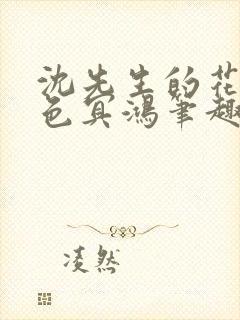 沈先生的花
色冥鸿笔趣
凌然